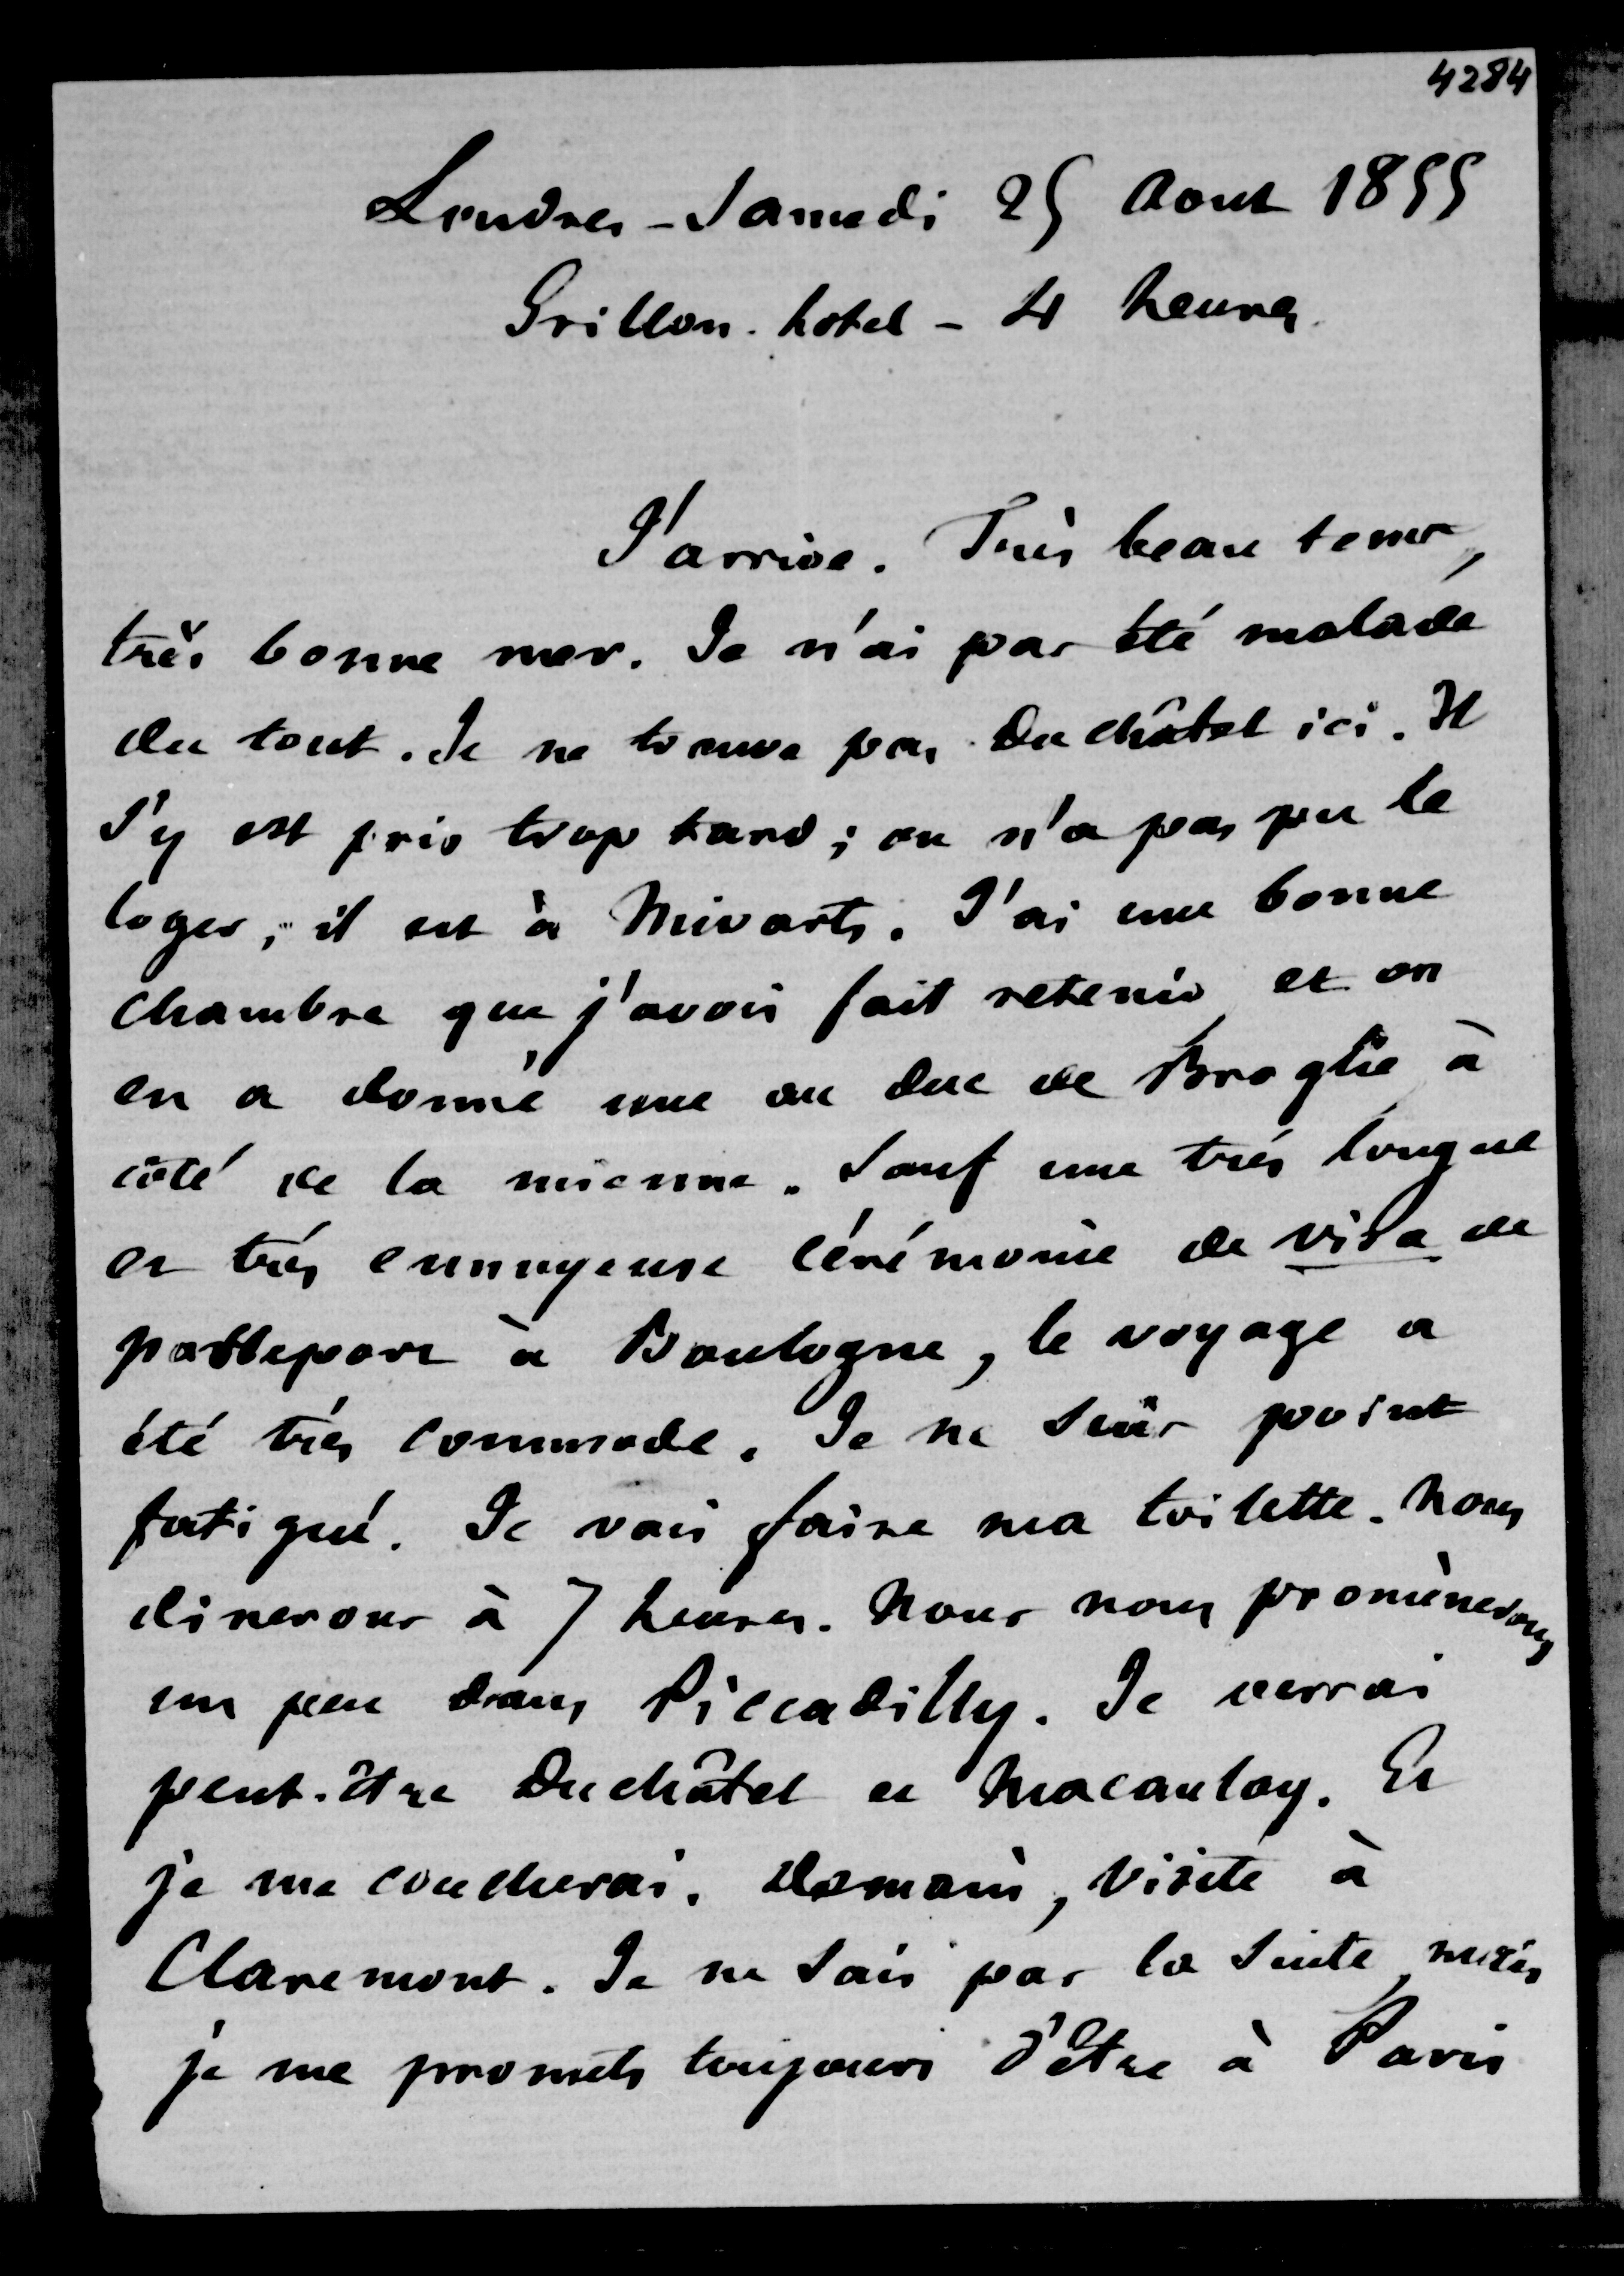 4284
Londres - Samedi 25 Aout 1855
Grillon. hotel - 4 heures.
J'arrive. Très beau tems,
très bonne mer. Je n'ai pas été malade
du tout. Je ne trouve pas Duchâtel ici. Il
s'y est pris trop tard ; on n'a pas pu le
loger ; il est à Mivarts. J'ai une bonne
chambre que j'avois fait retenir, et on
en a donné une au duc de Broglie à
côté de la mienne. Sauf une très longue
et très ennuyeuse cérémonie de visa de
passeport à Boulogne, le voyage a
été très commode. Je ne suis point
fatigué. Je vais faire ma toilette. Nous
dinerons à 7 heures. Nous nous promènerons
un peu dans Piccadilly. Je verrai
peut-être Duchâtel et Macaulay. Et
je me coucherai. Demain, visite à
Claremont. Je ne sais pas la suite, mais
je me promets toujours d'être à Paris